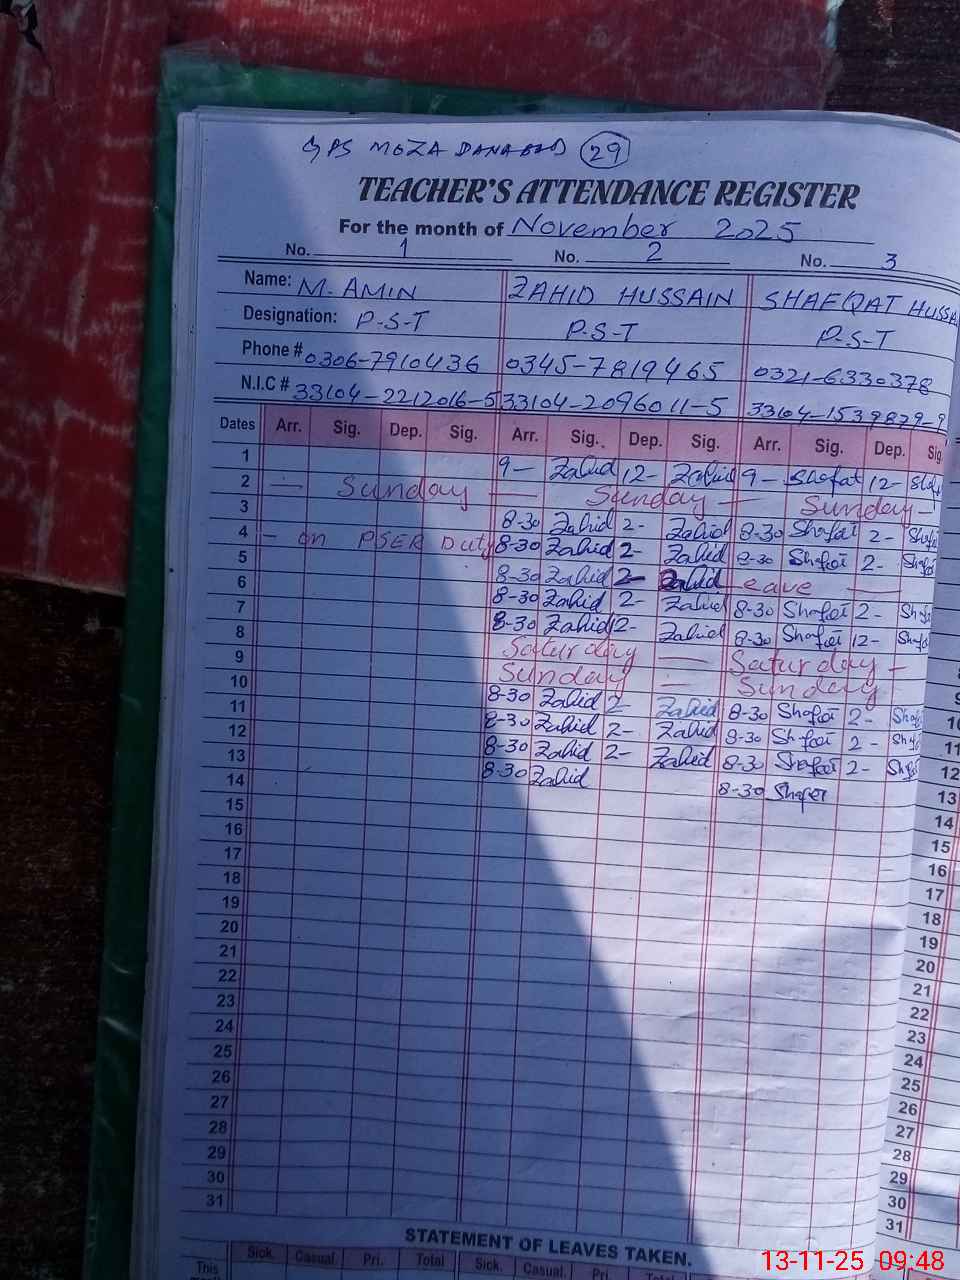 GPS MOZA DANABAD 29
TEACHER'S ATTENDANCE REGISTER
For the month of November 2025
No. 1 No. 2 No. 3
Name: M. AMIN ZAHID HUSSAIN SHAFQAT HUSSA
Designation: P-S-T P-S-T P-S-T
Phone # 0306-7910436 0345-7819465 0321-6330378
N.I.C # 33104-2212016-5 33104-2096011-5 33104-1539879-9
Dates Arr. Sig. Dep. Sig. Arr. Sig. Dep. Sig. Arr. Sig. Dep. Sig.
1 9- Zahid 12- Zahid 9- Shafat 12- Shaf
2 — Sunday — Sunday — Sunday -
3 8-30 Zahid 2- Zahid 8-30 Shafat 2- Shafat
4 - on PSER Duty 8-30 Zahid 2- Zahid 8-30 Shafat 2- Shafat
5 8-30 Zahid 2- Zahid Leave —
6 8-30 Zahid 2- Zahid 8-30 Shafat 2- Shaf
7 8-30 Zahid 12- Zahid 8-30 Shafat 12- Shaf
8 Saturday — Saturday -
9 Sunday — Sunday
10 8-30 Zahid 2- Zahid 8-30 Shafat 2- Shaf
11 8-30 Zahid 2- Zahid 8-30 Shafat 2- Shaf
12 8-30 Zahid 2- Zahid 8-30 Shafat 2- Shaf
13 8-30 Zahid 8-30 Shafat
14
15
16
17
18
19
20
21
22
23
24
25
26
27
28
29
30
31
10
11
12
13
14
15
16
17
18
19
20
21
22
23
24
25
26
27
28
29
30
31
STATEMENT OF LEAVES TAKEN.
This Sick. Casual. Pri. Total Sick. Casual. Pri. Total
13-11-25 09:48